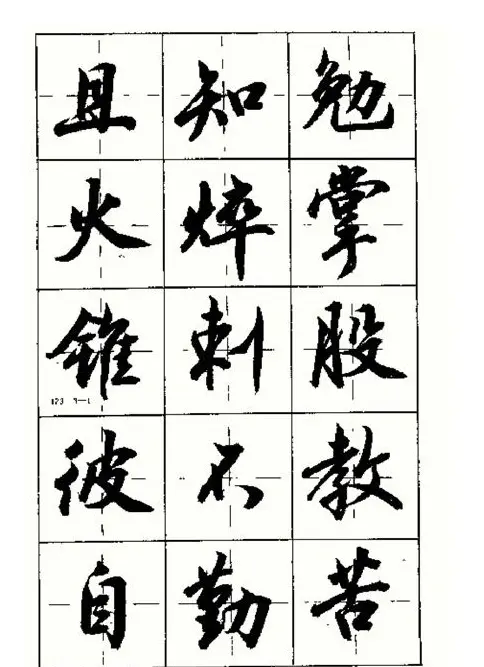 且知勉
火焠掌
錐刺股
彼不教
自勤苦